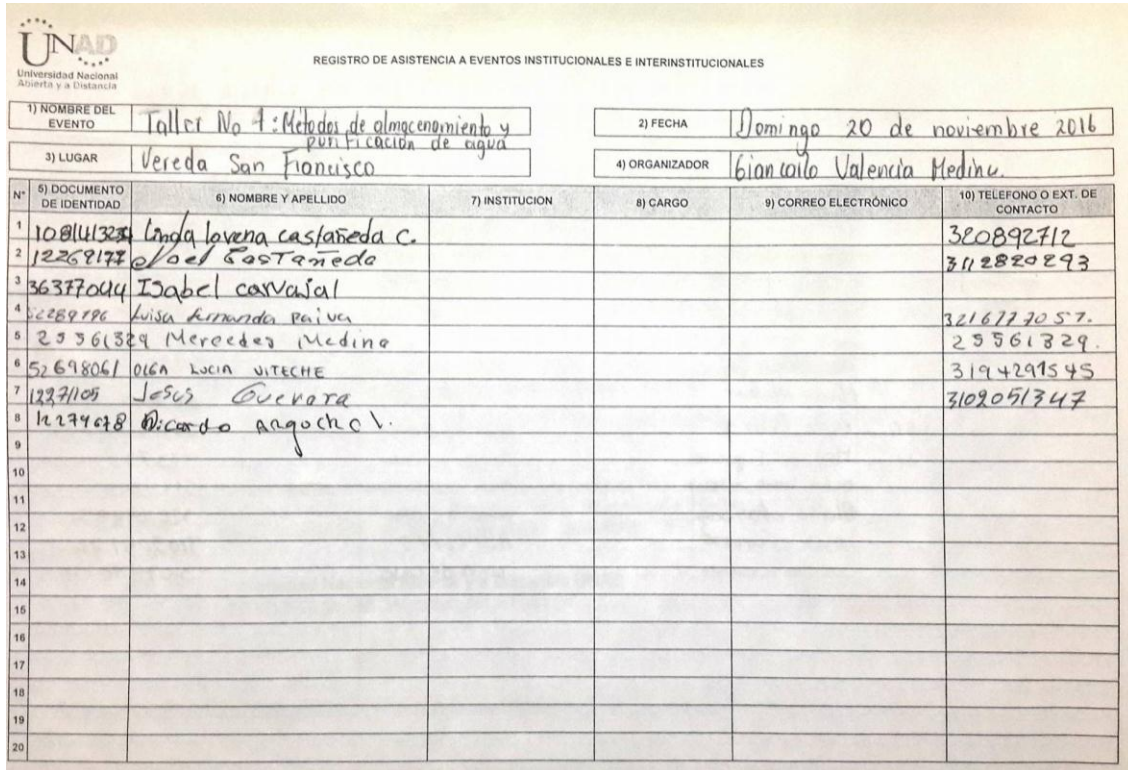 UNAD
Universidad Nacional
Abierta y a Distancia
REGISTRO DE ASISTENCIA A EVENTOS INSTITUCIONALES E INTERINSTITUCIONALES
1) NOMBRE DEL EVENTO Taller No 1: Métodos de almacenamiento y
purificación de agua
2) FECHA Domingo 20 de noviembre 2016
3) LUGAR Vereda San Francisco
4) ORGANIZADOR Giancarlo Valencia Medina.
N° 5) DOCUMENTO DE IDENTIDAD 6) NOMBRE Y APELLIDO 7) INSTITUCION 8) CARGO 9) CORREO ELECTRÓNICO 10) TELEFONO O EXT. DE CONTACTO
1 Linda lorena castañeda C. 320892712
2 12269177 Noel Castañeda 3112820293
3 36377044 Isabel carvajal
4 Luisa fernanda paiva 3216777057.
5 25561329 Mercedes Medina 25561329.
6 52698061 OLGA LUCIA VITECHE 3194291545
7 12271105 Jesus Guevara 3102051347
8 12274678 Ricardo
9
10
11
12
13
14
15
16
17
18
19
20